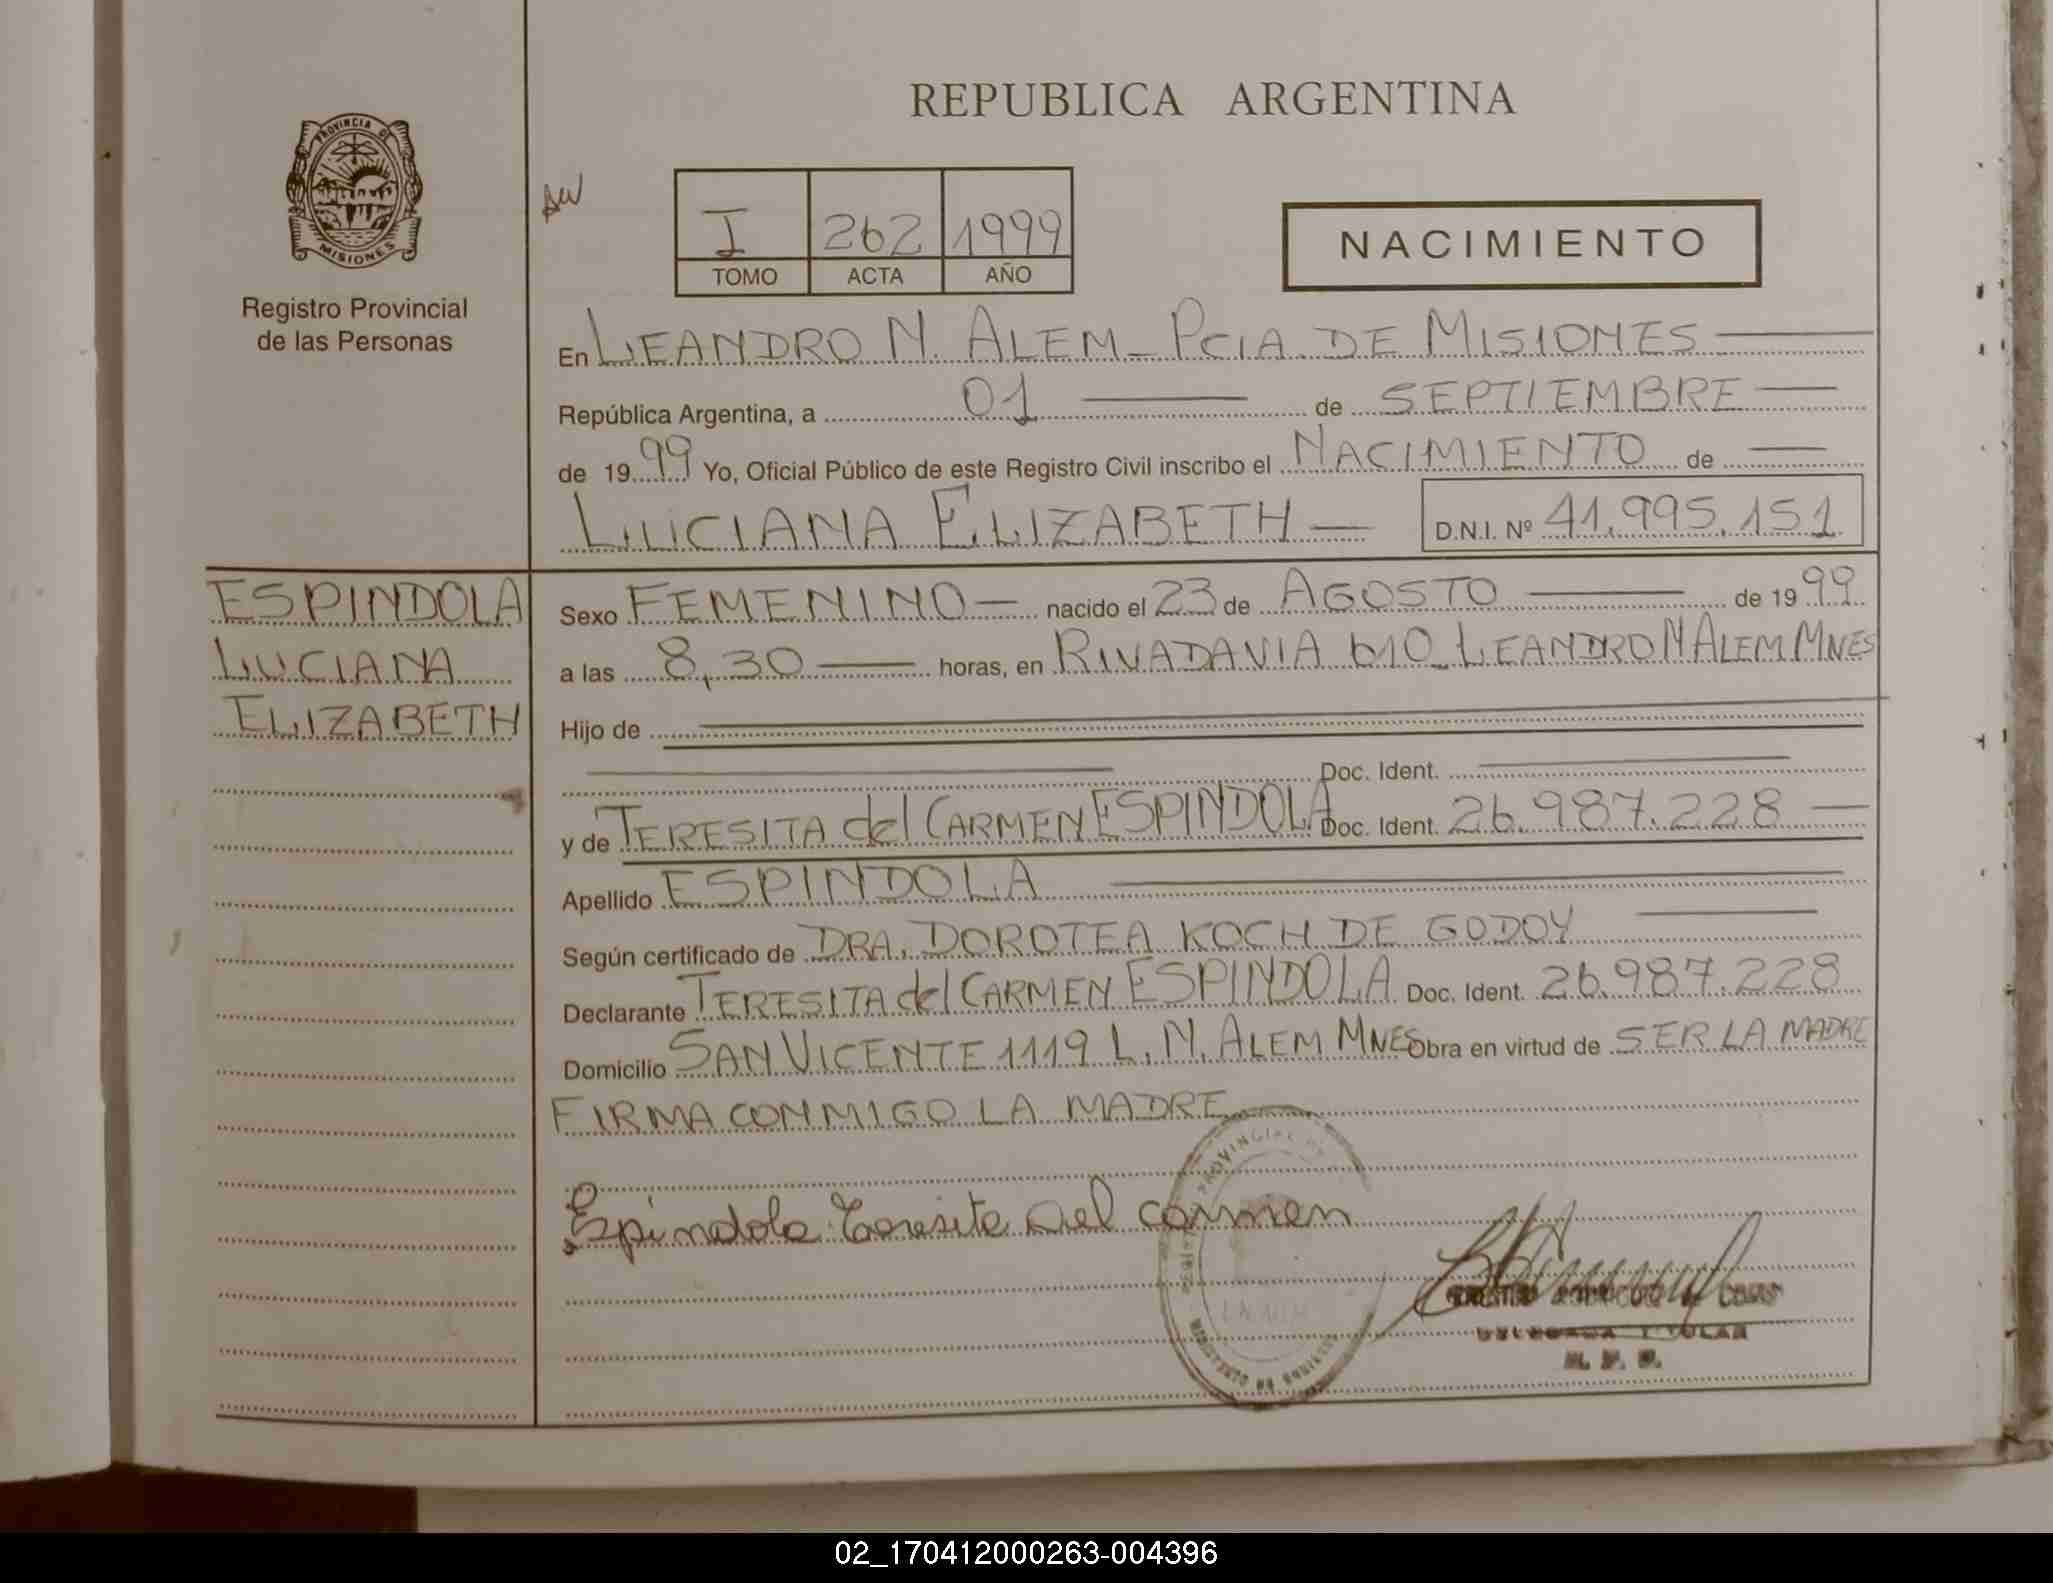 REPUBLICA ARGENTINA
PROVINCIA DE MISIONES
Registro Provincial
de las Personas
I 262 1999
TOMO ACTA AÑO
NACIMIENTO
En LEANDRO N. ALEM - PCIA. DE MISIONES
República Argentina, a 01 de SEPTIEMBRE
de 1999 Yo, Oficial Público de este Registro Civil inscribo el NACIMIENTO de
LUCIANA ELIZABETH D.N.I. Nº 41.995.151
ESPINDOLA
LUCIANA
ELIZABETH
Sexo FEMENINO nacido el 23 de AGOSTO de 1999
a las 8,30 horas, en RIVADAVIA 610 LEANDRO N ALEM MNES
Hijo de
Doc. Ident.
y de TERESITA del CARMEN ESPINDOLA Doc. Ident. 26.987.228
Apellido ESPINDOLA
Según certificado de DRA. DOROTEA KOCH DE GODOY
Declarante TERESITA del CARMEN ESPINDOLA Doc. Ident. 26.987.228
Domicilio SAN VICENTE 1119 L. N. ALEM MNES Obra en virtud de SER LA MADRE
FIRMA CONMIGO LA MADRE
Espindola Teresita Del Carmen
PROVINCIAL DE
DELEGADA TITULAR
02_170412000263-004396